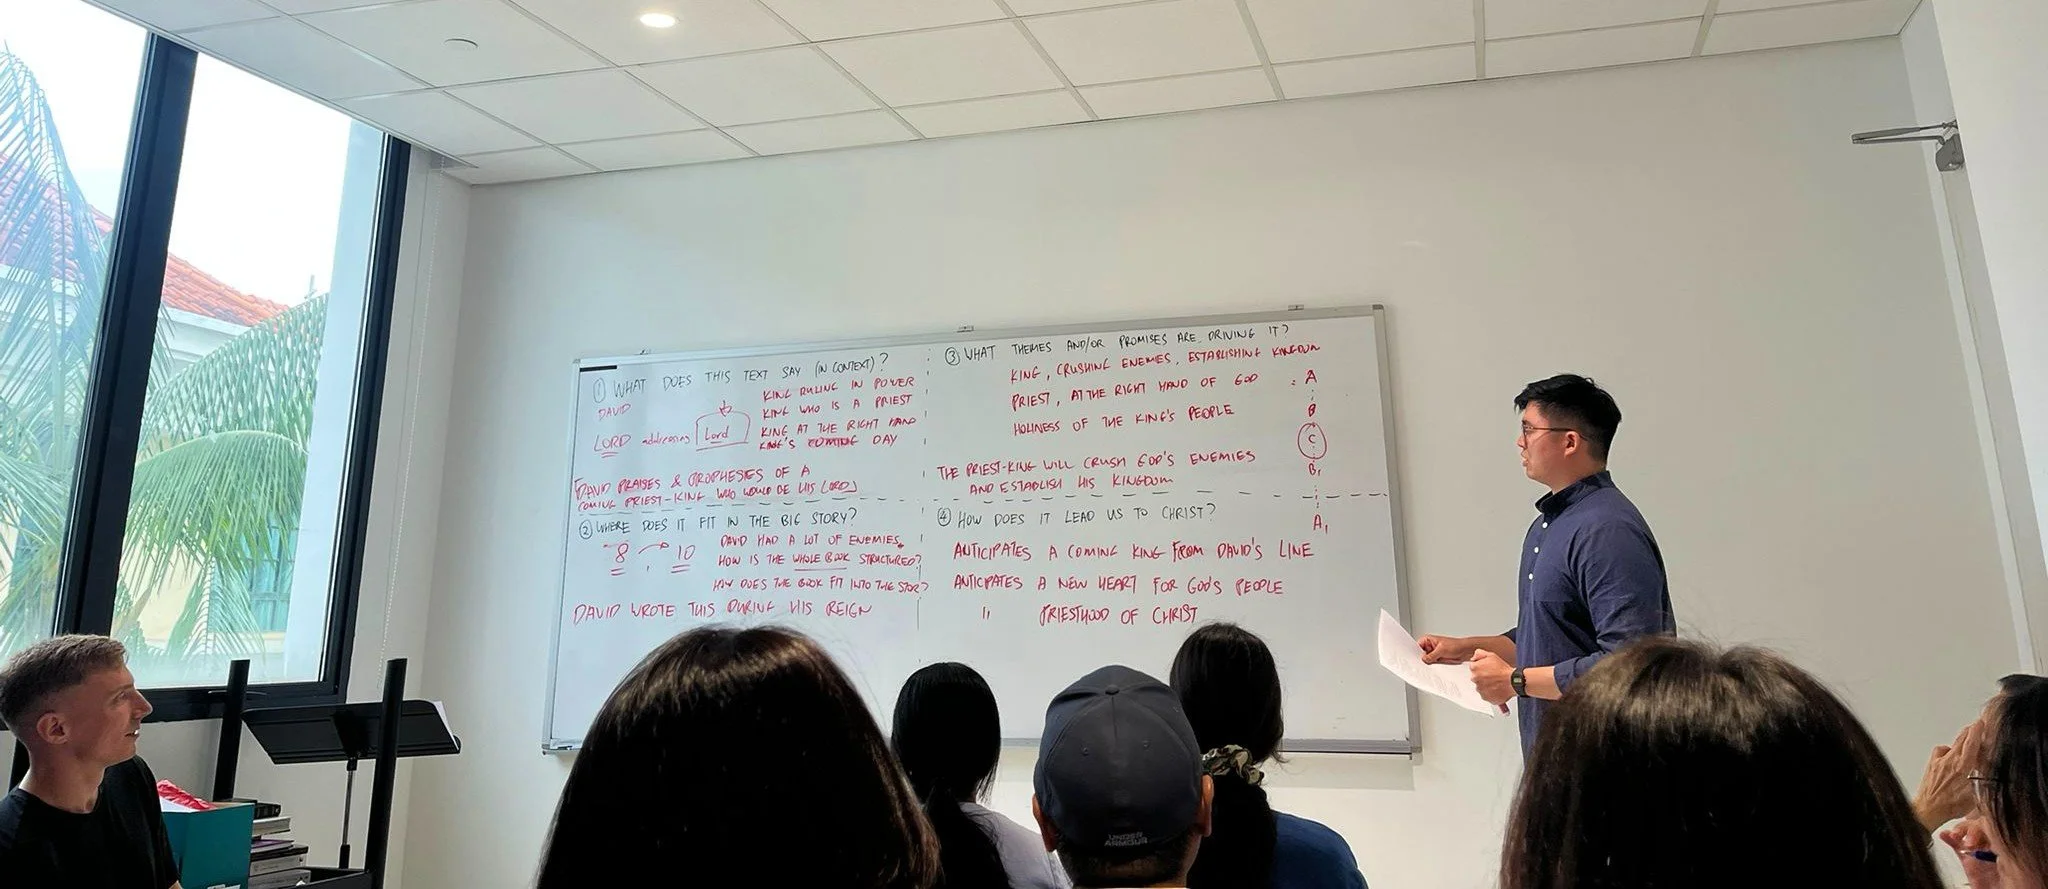 ① WHAT DOES THIS TEXT SAY (IN CONTEXT)?
DAVID
LORD addressing Lord
KING RULING IN POWER
KING WHO IS A PRIEST
KING AT THE RIGHT HAND
KING'S COMING DAY
DAVID PRAISES & PROPHESIES OF A
COMING PRIEST-KING WHO WOULD BE HIS LORD
② WHERE DOES IT FIT IN THE BIG STORY?
8 10
DAVID HAD A LOT OF ENEMIES
HOW IS THE WHOLE BOOK STRUCTURED?
HOW DOES THE BOOK FIT INTO THE STORY?
DAVID WROTE THIS DURING HIS REIGN
③ WHAT THEMES AND/OR PROMISES ARE DRIVING IT?
KING, CRUSHING ENEMIES, ESTABLISHING KINGDOM
PRIEST, AT THE RIGHT HAND OF GOD
HOLINESS OF THE KING'S PEOPLE
THE PRIEST-KING WILL CRUSH GOD'S ENEMIES
AND ESTABLISH HIS KINGDOM
A
B
C
B₁
A₁
④ HOW DOES IT LEAD US TO CHRIST?
ANTICIPATES A COMING KING FROM DAVID'S LINE
ANTICIPATES A NEW HEART FOR GOD'S PEOPLE
" PRIESTHOOD OF CHRIST
UNDER
ARMOUR